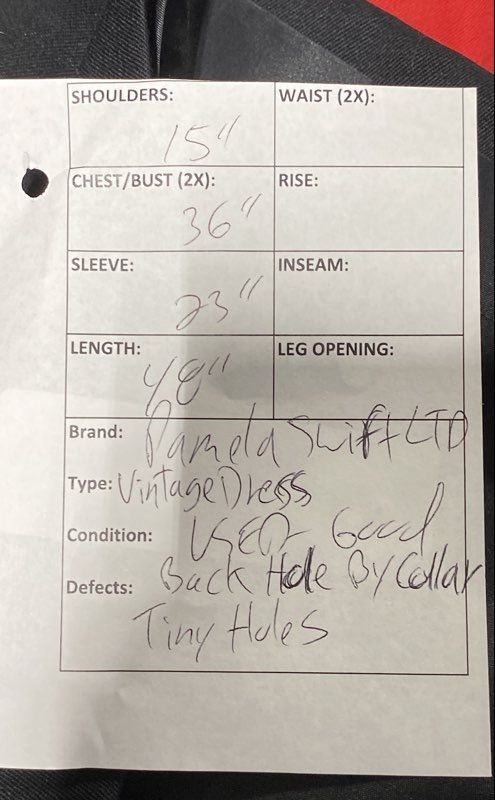 SHOULDERS: 15"
WAIST (2X):
CHEST/BUST (2X): 36"
RISE:
SLEEVE: 23"
INSEAM:
LENGTH: 48"
LEG OPENING:
Brand: Pamela Swift LTD
Type: Vintage Dress
Condition: USED- Good
Defects: Back Hole By Collar
Tiny Holes